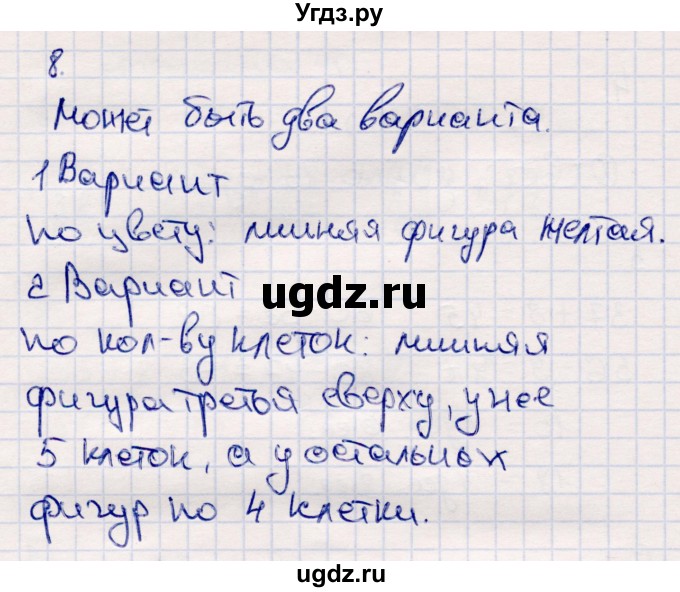 Угдз.ру
8.
Может быть два варианта.
1 Вариант
по цвету: лишняя фигура желтая.
2 Вариант
ugdz.ru
по кол-ву клеток: лишняя
фигура третья сверху, у нее
5 клеток, а у остальных
фигур по 4 клетки.
ugdz.ru